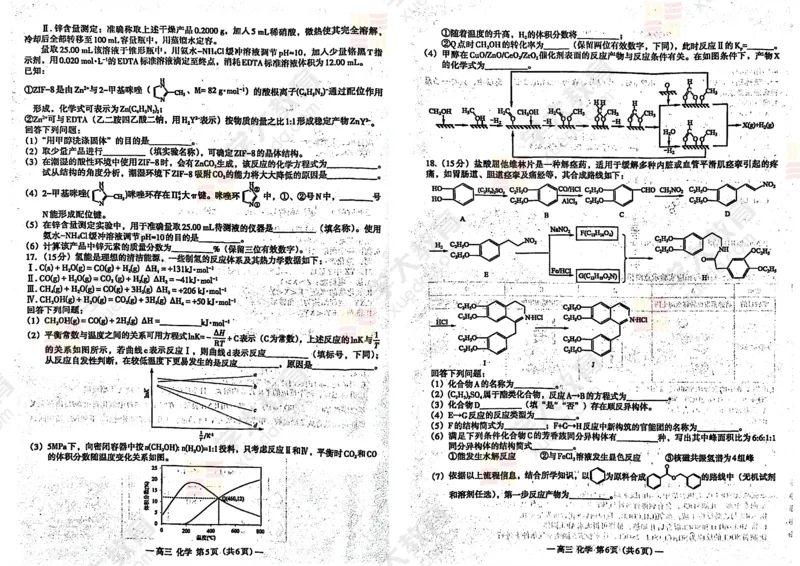 Ⅱ.锌含量测定：准确称取上述干燥产品0.2000 g，加入5 mL稀硝酸，微热使其完全溶解，
冷却后全部转移至100 mL容量瓶中，用蒸馏水定容。
量取25.00 mL该溶液于锥形瓶中，用氨水-NH₄Cl缓冲溶液调节pH=10，加入少量铬黑T指
示剂，用0.020 mol·L⁻¹的EDTA标准溶液滴定至终点，消耗EDTA标准溶液体积为12.00 mL。
已知：
①ZIF-8是由Zn²⁺与2-甲基咪唑（ N H N CH₃、M= 82 g·mol⁻¹）的酸根离子(C₄H₅N₂)⁻通过配位作用
形成，化学式可表示为Zn(C₄H₅N₂)₂；
②Zn²⁺可与EDTA（乙二胺四乙酸二钠，用H₂Y²⁻表示）按物质的量之比1:1形成稳定产物ZnY²⁻。
回答下列问题：
（1）“用甲醇洗涤固体”的目的是
（2）取少量产品进行（填实验名称），可确定ZIF-8的晶体结构。
（3）在潮湿的酸性环境中使用ZIF-8时，会有ZnCO₃生成，该反应的化学方程式为
试从结构的角度分析，潮湿环境下ZIF-8吸附CO₂的能力将大大降低的原因是
（4）2-甲基咪唑( CH₃)咪唑环存在Π₅⁶大π键。咪唑环 中，①、②号N中，号
N能形成配位键。
（5）在锌含量测定实验中，用于准确量取25.00 mL待测液的仪器是（填名称）。使用
氨水-NH₄Cl缓冲溶液调节pH=10的目的是
（6）计算该产品中锌元素的质量分数为%（保留三位有效数字）。
17.（15分）氢能是理想的清洁能源，一些制氢的反应体系及其热力学数据如下：
Ⅰ.C(s) + H₂O(g) = CO(g) + H₂(g) ΔH₁ = +131kJ·mol⁻¹
Ⅱ.CO(g) + H₂O(g) = CO₂(g) + H₂(g) ΔH₂ = -41kJ·mol⁻¹
Ⅲ.CH₄(g) + H₂O(g) = CO(g) + 3H₂(g) ΔH₃ = +206 kJ·mol⁻¹
Ⅳ.CH₃OH(g) + H₂O(g) = CO₂(g) + 3H₂(g) ΔH₄ = +50 kJ·mol⁻¹
回答下列问题：
（1）CH₃OH(g) = CO(g) + 2H₂(g) ΔH = kJ·mol⁻¹
（2）平衡常数与温度之间的关系可用方程式lnK= -ΔH/RT + C表示（C为常数），上述反应的lnK与1/T
的关系如图所示，若曲线c表示反应Ⅰ，则曲线d表示反应（填标号，下同）；
从反应自发性判断，在较低温度下更易发生的是反应，原因是
lnK
a
b
c
d
1/T /K⁻¹
（3）5MPa下，向密闭容器中按n(CH₃OH): n(H₂O)=1:1投料，只考虑反应Ⅱ和Ⅳ，平衡时CO₂和CO
的体积分数随温度变化关系如图。
体积分数(%)
25
20
15
10
5
0
Q(460,12)
200 400 600 800
温度(℃)
高三 化学 第5页（共6页）
①随着温度的升高，H₂的体积分数将
②Q点时CH₃OH的转化率为（保留两位有效数字，下同），此时反应Ⅱ的Kₚ=
（4）甲醇在CuO/ZnO/CeO₂/ZrO₂催化剂表面的反应产物与反应条件有关。在如图条件下，产物X
的化学式为
CH₃OH
X(g)+H₂(g)
18.（15分）盐酸屈他维林片是一种解痉药，适用于缓解多种内脏或血管平滑肌痉挛引起的疼
痛，如胃肠道、胆道痉挛及痛经等，其合成路线如下：
HO HO (C₂H₅)₂SO₄ C₂H₅O C₂H₅O CO/HCl AlCl₃ C₂H₅O C₂H₅O CHO CH₃NO₂ C₂H₅O C₂H₅O NO₂
A B C D
H₂ C₂H₅O C₂H₅O NO₂ NaNO₂ Fe/HCl
E
H
HCl C₂H₅O C₂H₅O N·HCl C₂H₅O C₂H₅O
I J
回答下列问题：
（1）化合物A的名称为
（2）(C₂H₅)₂SO₄属于酯类化合物，反应A→B的方程式为
（3）化合物D（填“是”“否”）存在顺反异构体。
（4）E→G反应的反应类型为
（5）F的结构简式为；F+G→H反应中新构筑的官能团的名称为
（6）满足下列条件化合物C的芳香族同分异构体有种，写出其中峰面积比为6:6:1:1
同分异构体的结构简式
①能发生水解反应 ②与FeCl₃溶液发生显色反应 ③核磁共振氢谱为4组峰
（7）依据以上流程信息，结合所学知识，以 为原料合成 的路线中（无机试剂
和溶剂任选），第一步反应产物为
高三 化学 第6页（共6页）